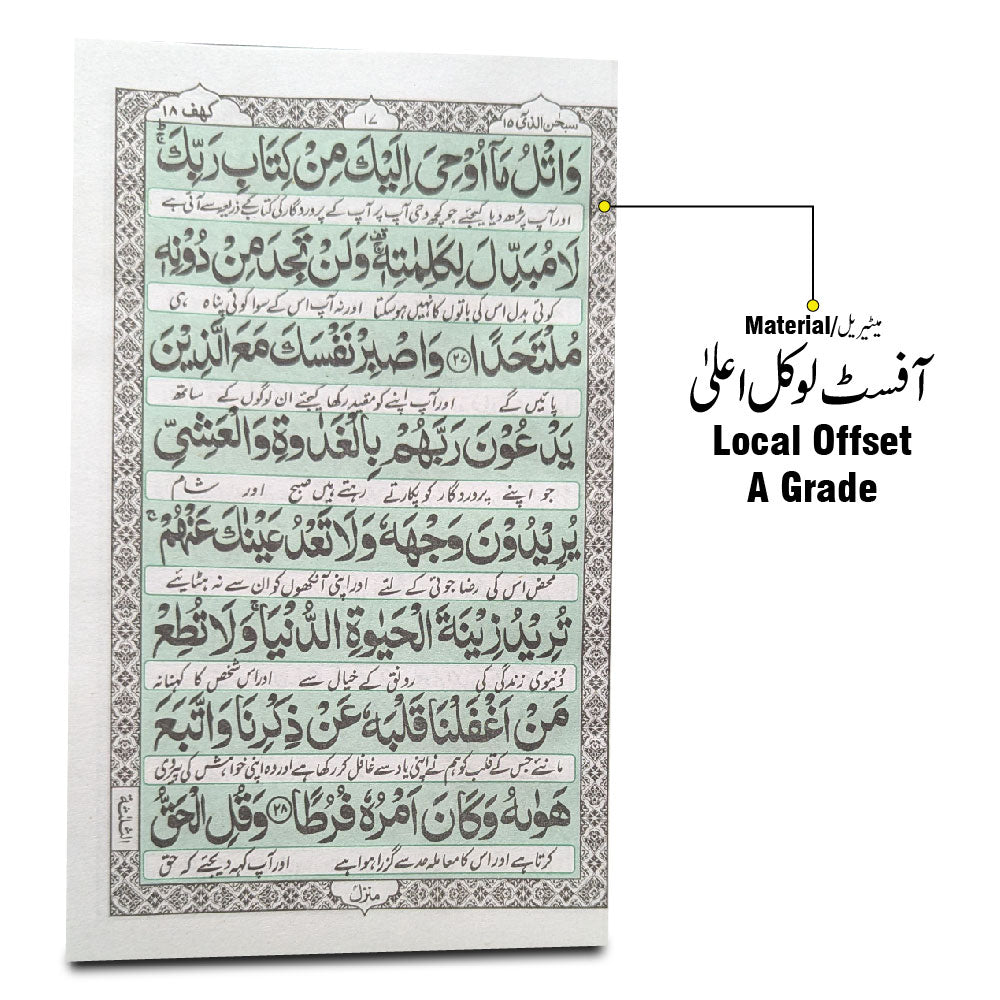 سبحن الذی ١٥
١٧
کهف ١٨
وَاتْلُ مَآ اُوْحِیَ اِلَیْكَ مِنْ كِتَابِ رَبِّكَ ؕۚ
اور آپ پڑھ دیا کیجئے جو کچھ وحی آپ پر آپ کے پروردگار کی کتاب کے ذریعہ سے آئی ہے
لَا مُبَدِّلَ لِكَلِمٰتِهٖ ۚ۫ وَلَنْ تَجِدَ مِنْ دُوْنِهٖ
کوئی بدل اس کی باتوں کا نہیں ہوسکتا اور نہ آپ اس کے سوا کوئی پناہ ہی
مُلْتَحَدًا ﴿٢٧﴾ وَاصْبِرْ نَفْسَكَ مَعَ الَّذِیْنَ
پائیں گے اور آپ اپنے کو مقید رکھا کیجئے ان لوگوں کے ساتھ
یَدْعُوْنَ رَبَّهُمْ بِالْغَدٰوةِ وَالْعَشِیِّ
جو اپنے پروردگار کو پکارتے رہتے ہیں صبح اور شام
یُرِیْدُوْنَ وَجْهَهٗ وَلَا تَعْدُ عَیْنٰكَ عَنْهُمْ ۚ
محض اس کی رضا جوئی کے لئے اور اپنی آنکھوں کو ان سے نہ ہٹایئے
تُرِیْدُ زِیْنَةَ الْحَیٰوةِ الدُّنْیَا ۚ وَلَا تُطِعْ
دنیوی زندگی کی رونق کے خیال سے اور اس شخص کا کہنا نہ
مَنْ اَغْفَلْنَا قَلْبَهٗ عَنْ ذِكْرِنَا وَاتَّبَعَ
مانئے جس کے قلب کو ہم نے اپنی یاد سے غافل کر رکھا ہے اور وہ اپنی خواہش کی پیروی
هَوٰىهُ وَكَانَ اَمْرُهٗ فُرُطًا ﴿٢٨﴾ وَقُلِ الْحَقُّ
کرتا ہے اور اس کا معاملہ حد سے گزرا ہوا ہے اور آپ کہہ دیجئے کہ حق
منزل
Material/میٹیریل
آفسٹ لوکل اعلیٰ
Local Offset
A Grade